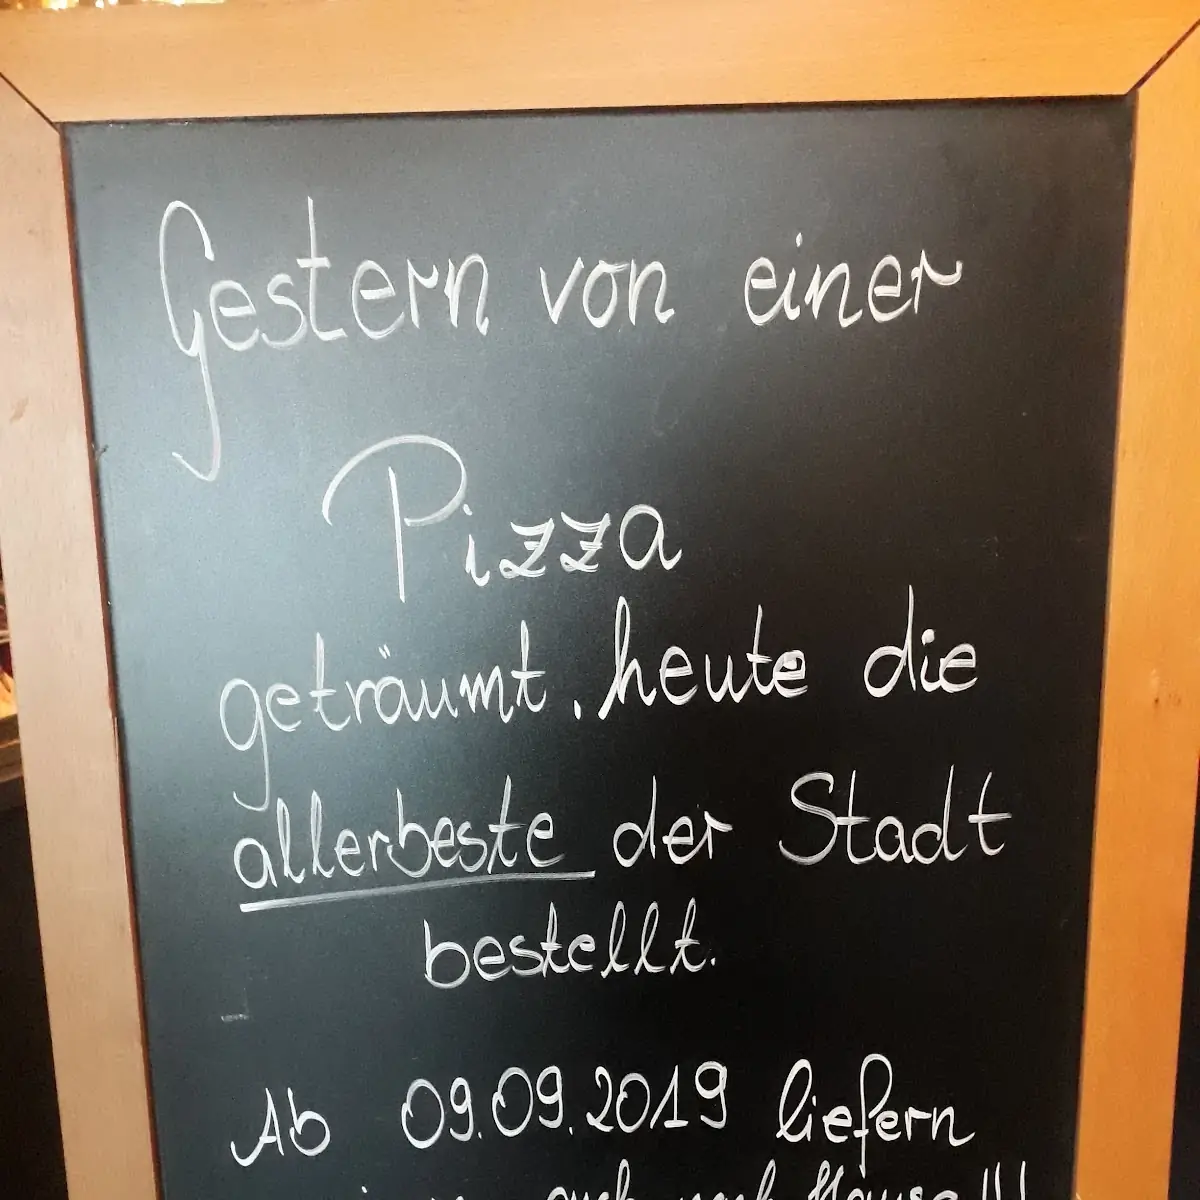 Gestern von einer
Pizza
geträumt, heute die
allerbeste der Stadt
bestellt.
Ab 09.09.2019 liefern
auch nach Hause!!!